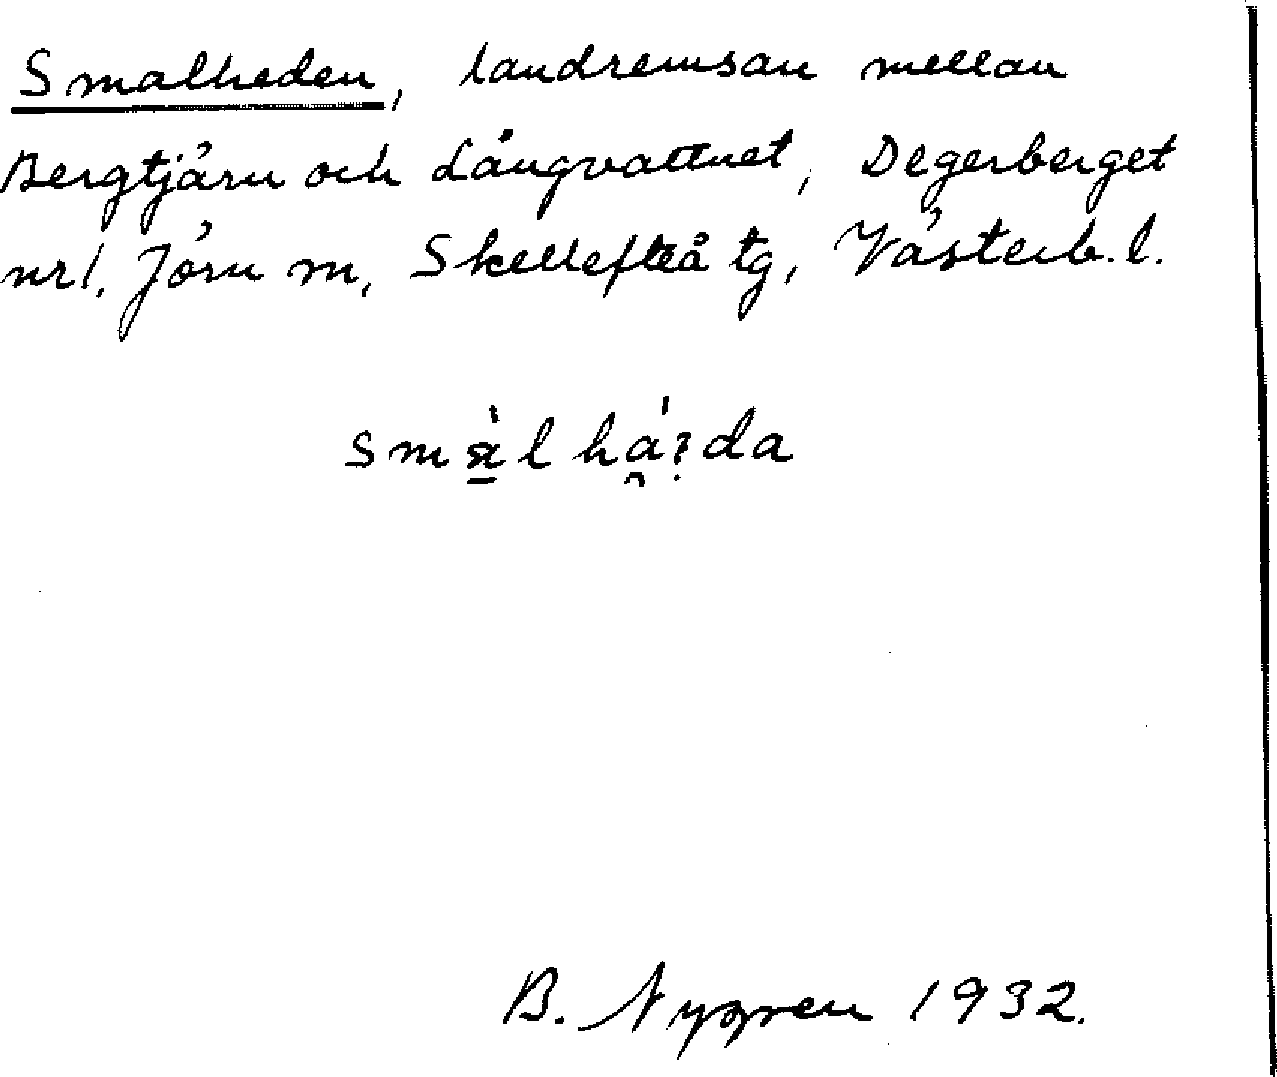 Smalheden, landremsan mellan
Bergtjärn och Långvattnet, Degerberget
nr 1, Jörn m, Skellefteå tg, Västerb. l.
B. Nygren 1932.